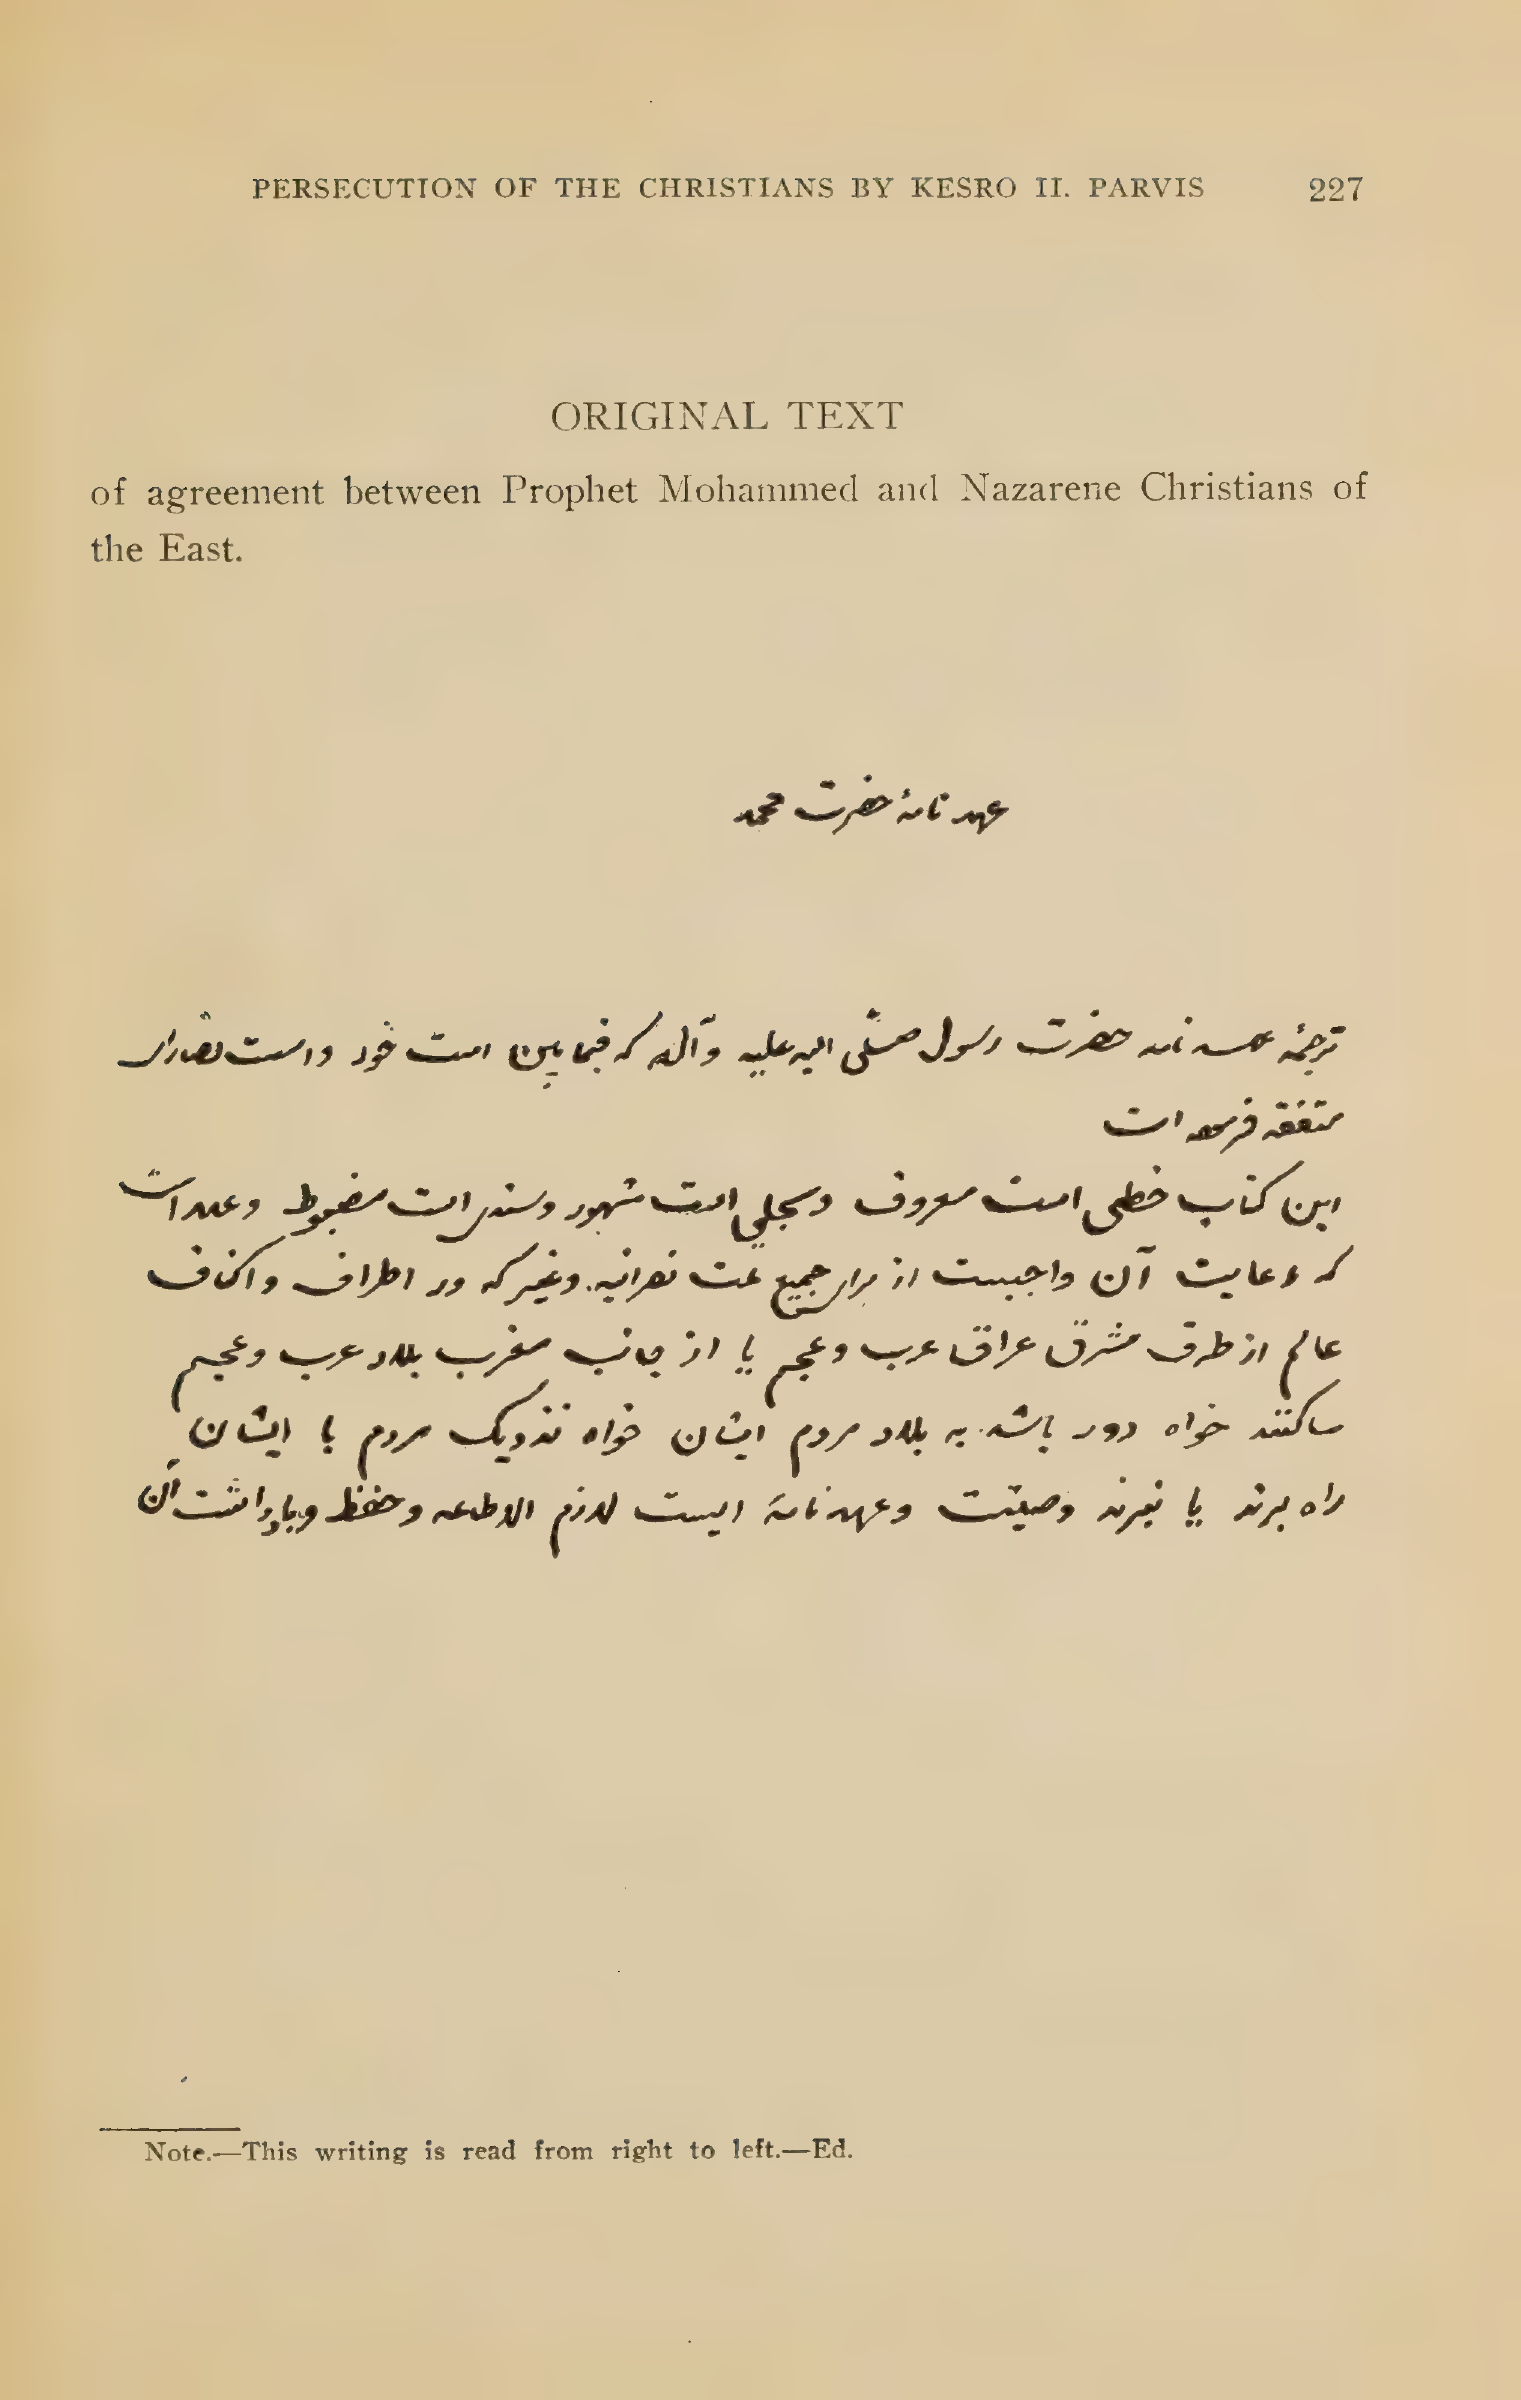 PERSECUTION OF THE CHRISTIANS BY KESRO II. PARVIS 227
ORIGINAL TEXT
of agreement between Prophet Mohammed and Nazarene Christians of
the East.
عهد نامهٔ حضرت محمد
ترجمهٔ عهد نامه حضرت رسول صلّی الله علیه وآله که فیما بین امت خود وامت نصارای
متفقه فرموده است
این کتاب خطی است معروف وسجلی است مشهور وسندی است مضبوط وعهد است
که رعایت آن واجبست از برای جمیع ملت نصرانیه وغیر که در اطراف واکناف
عالم از طرف مشرق عراق عرب وعجم یا از جانب مغرب بلاد عرب وعجم
ساکنند خواه دور باشد به بلاد مردم ایشان خواه نزدیک مردم با ایشان
راه برند یا نبرند وصیّت وعهد نامهٔ ایست لازم الاطاعه وحفظ ویادداشت آن
Note.—This writing is read from right to left.—Ed.